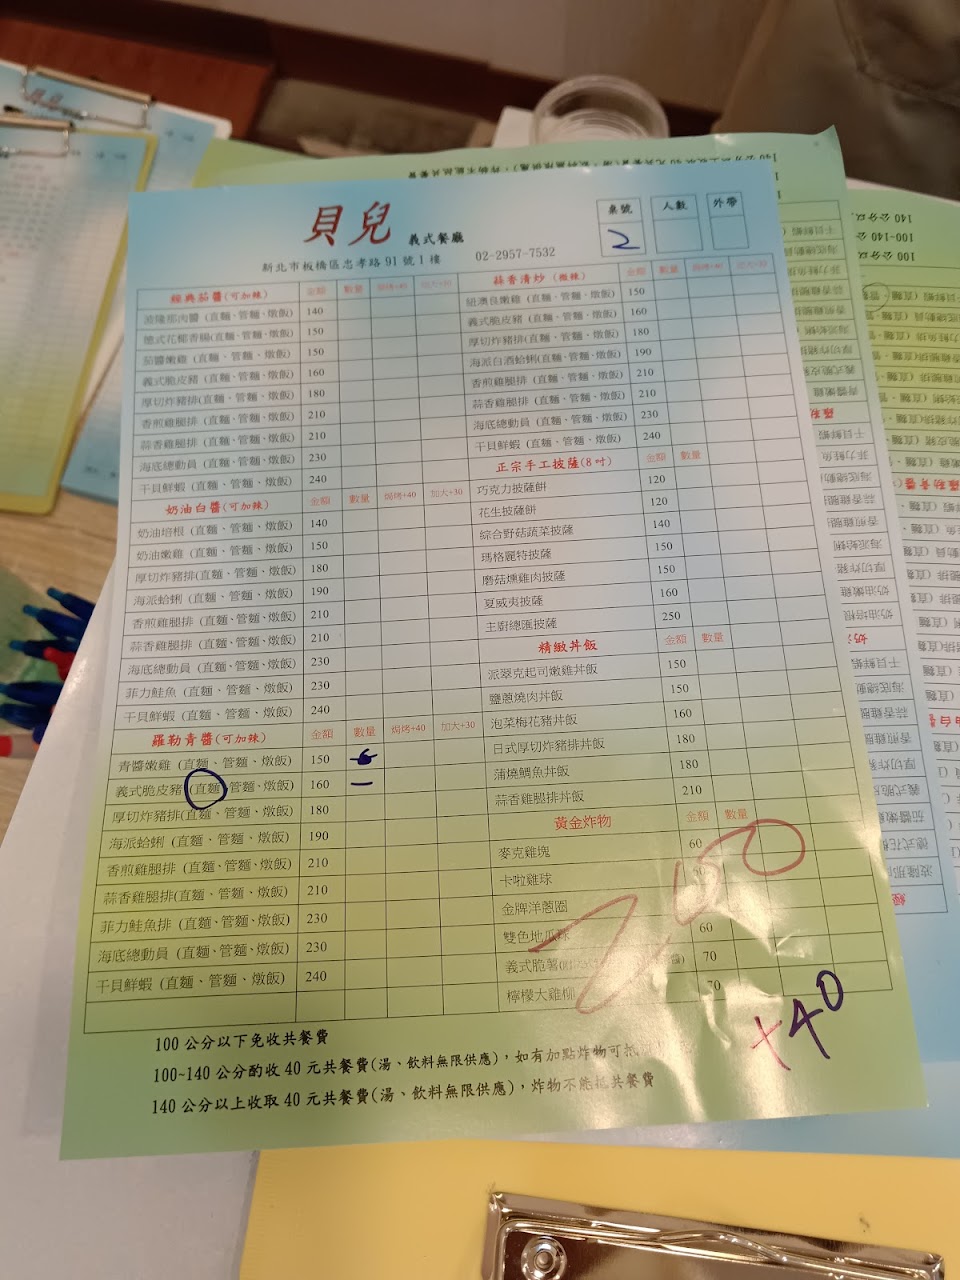 貝兒 義式餐廳
新北市板橋區忠孝路91號1樓 02-2957-7532
桌號 人數 外帶
2
經典茄醬(可加辣) 金額 數量 焗烤+40 加大+30
波隆那肉醬 (直麵、管麵、燉飯) 140
德式花椰香腸(直麵、管麵、燉飯) 150
茄醬嫩雞 (直麵、管麵、燉飯) 150
義式脆皮豬 (直麵、管麵、燉飯) 160
厚切炸豬排(直麵、管麵、燉飯) 180
香煎雞腿排 (直麵、管麵、燉飯) 210
蒜香雞腿排 (直麵、管麵、燉飯) 210
海底總動員 (直麵、管麵、燉飯) 230
干貝鮮蝦 (直麵、管麵、燉飯) 240
奶油白醬(可加辣) 金額 數量 焗烤+40 加大+30
奶油培根 (直麵、管麵、燉飯) 140
奶油嫩雞 (直麵、管麵、燉飯) 150
厚切炸豬排(直麵、管麵、燉飯) 180
海派蛤蜊 (直麵、管麵、燉飯) 190
香煎雞腿排 (直麵、管麵、燉飯) 210
蒜香雞腿排 (直麵、管麵、燉飯) 210
海底總動員 (直麵、管麵、燉飯) 230
菲力鮭魚 (直麵、管麵、燉飯) 230
干貝鮮蝦 (直麵、管麵、燉飯) 240
羅勒青醬(可加辣) 金額 數量 焗烤+40 加大+30
青醬嫩雞 (直麵、管麵、燉飯) 150
義式脆皮豬 (直麵、管麵、燉飯) 160 一
厚切炸豬排(直麵、管麵、燉飯) 180
海派蛤蜊 (直麵、管麵、燉飯) 190
香煎雞腿排 (直麵、管麵、燉飯) 210
蒜香雞腿排(直麵、管麵、燉飯) 210
菲力鮭魚排 (直麵、管麵、燉飯) 230
海底總動員 (直麵、管麵、燉飯) 230
干貝鮮蝦 (直麵、管麵、燉飯) 240
蒜香清炒 (微辣) 金額 數量 焗烤+40 加大+30
紐澳良嫩雞 (直麵、管麵、燉飯) 150
義式脆皮豬 (直麵、管麵、燉飯) 160
厚切炸豬排 (直麵、管麵、燉飯) 180
海派白酒蛤蜊(直麵、管麵、燉飯) 190
香煎雞腿排 (直麵、管麵、燉飯) 210
蒜香雞腿排 (直麵、管麵、燉飯) 210
海底總動員 (直麵、管麵、燉飯) 230
干貝鮮蝦 (直麵、管麵、燉飯) 240
正宗手工披薩(8吋) 金額 數量
巧克力披薩餅 120
花生披薩餅 120
綜合野菇蔬菜披薩 140
瑪格麗特披薩 150
磨菇燻雞肉披薩 150
夏威夷披薩 160
主廚總匯披薩 250
精緻丼飯 金額 數量
派翠克起司嫩雞丼飯 150
鹽蔥燒肉丼飯 150
泡菜梅花豬丼飯 160
日式厚切炸豬排丼飯 180
蒲燒鯛魚丼飯 180
蒜香雞腿排丼飯 210
黃金炸物 金額 數量
麥克雞塊 60
卡啦雞球
金牌洋蔥圈
雙色地瓜球 60
義式脆薯 70
檸檬大雞柳 70
200
+40
100公分以下免收共餐費
100~140公分酌收40元共餐費(湯、飲料無限供應)，如有加點炸物可抵
140公分以上收取40元共餐費(湯、飲料無限供應)，炸物不能抵共餐費